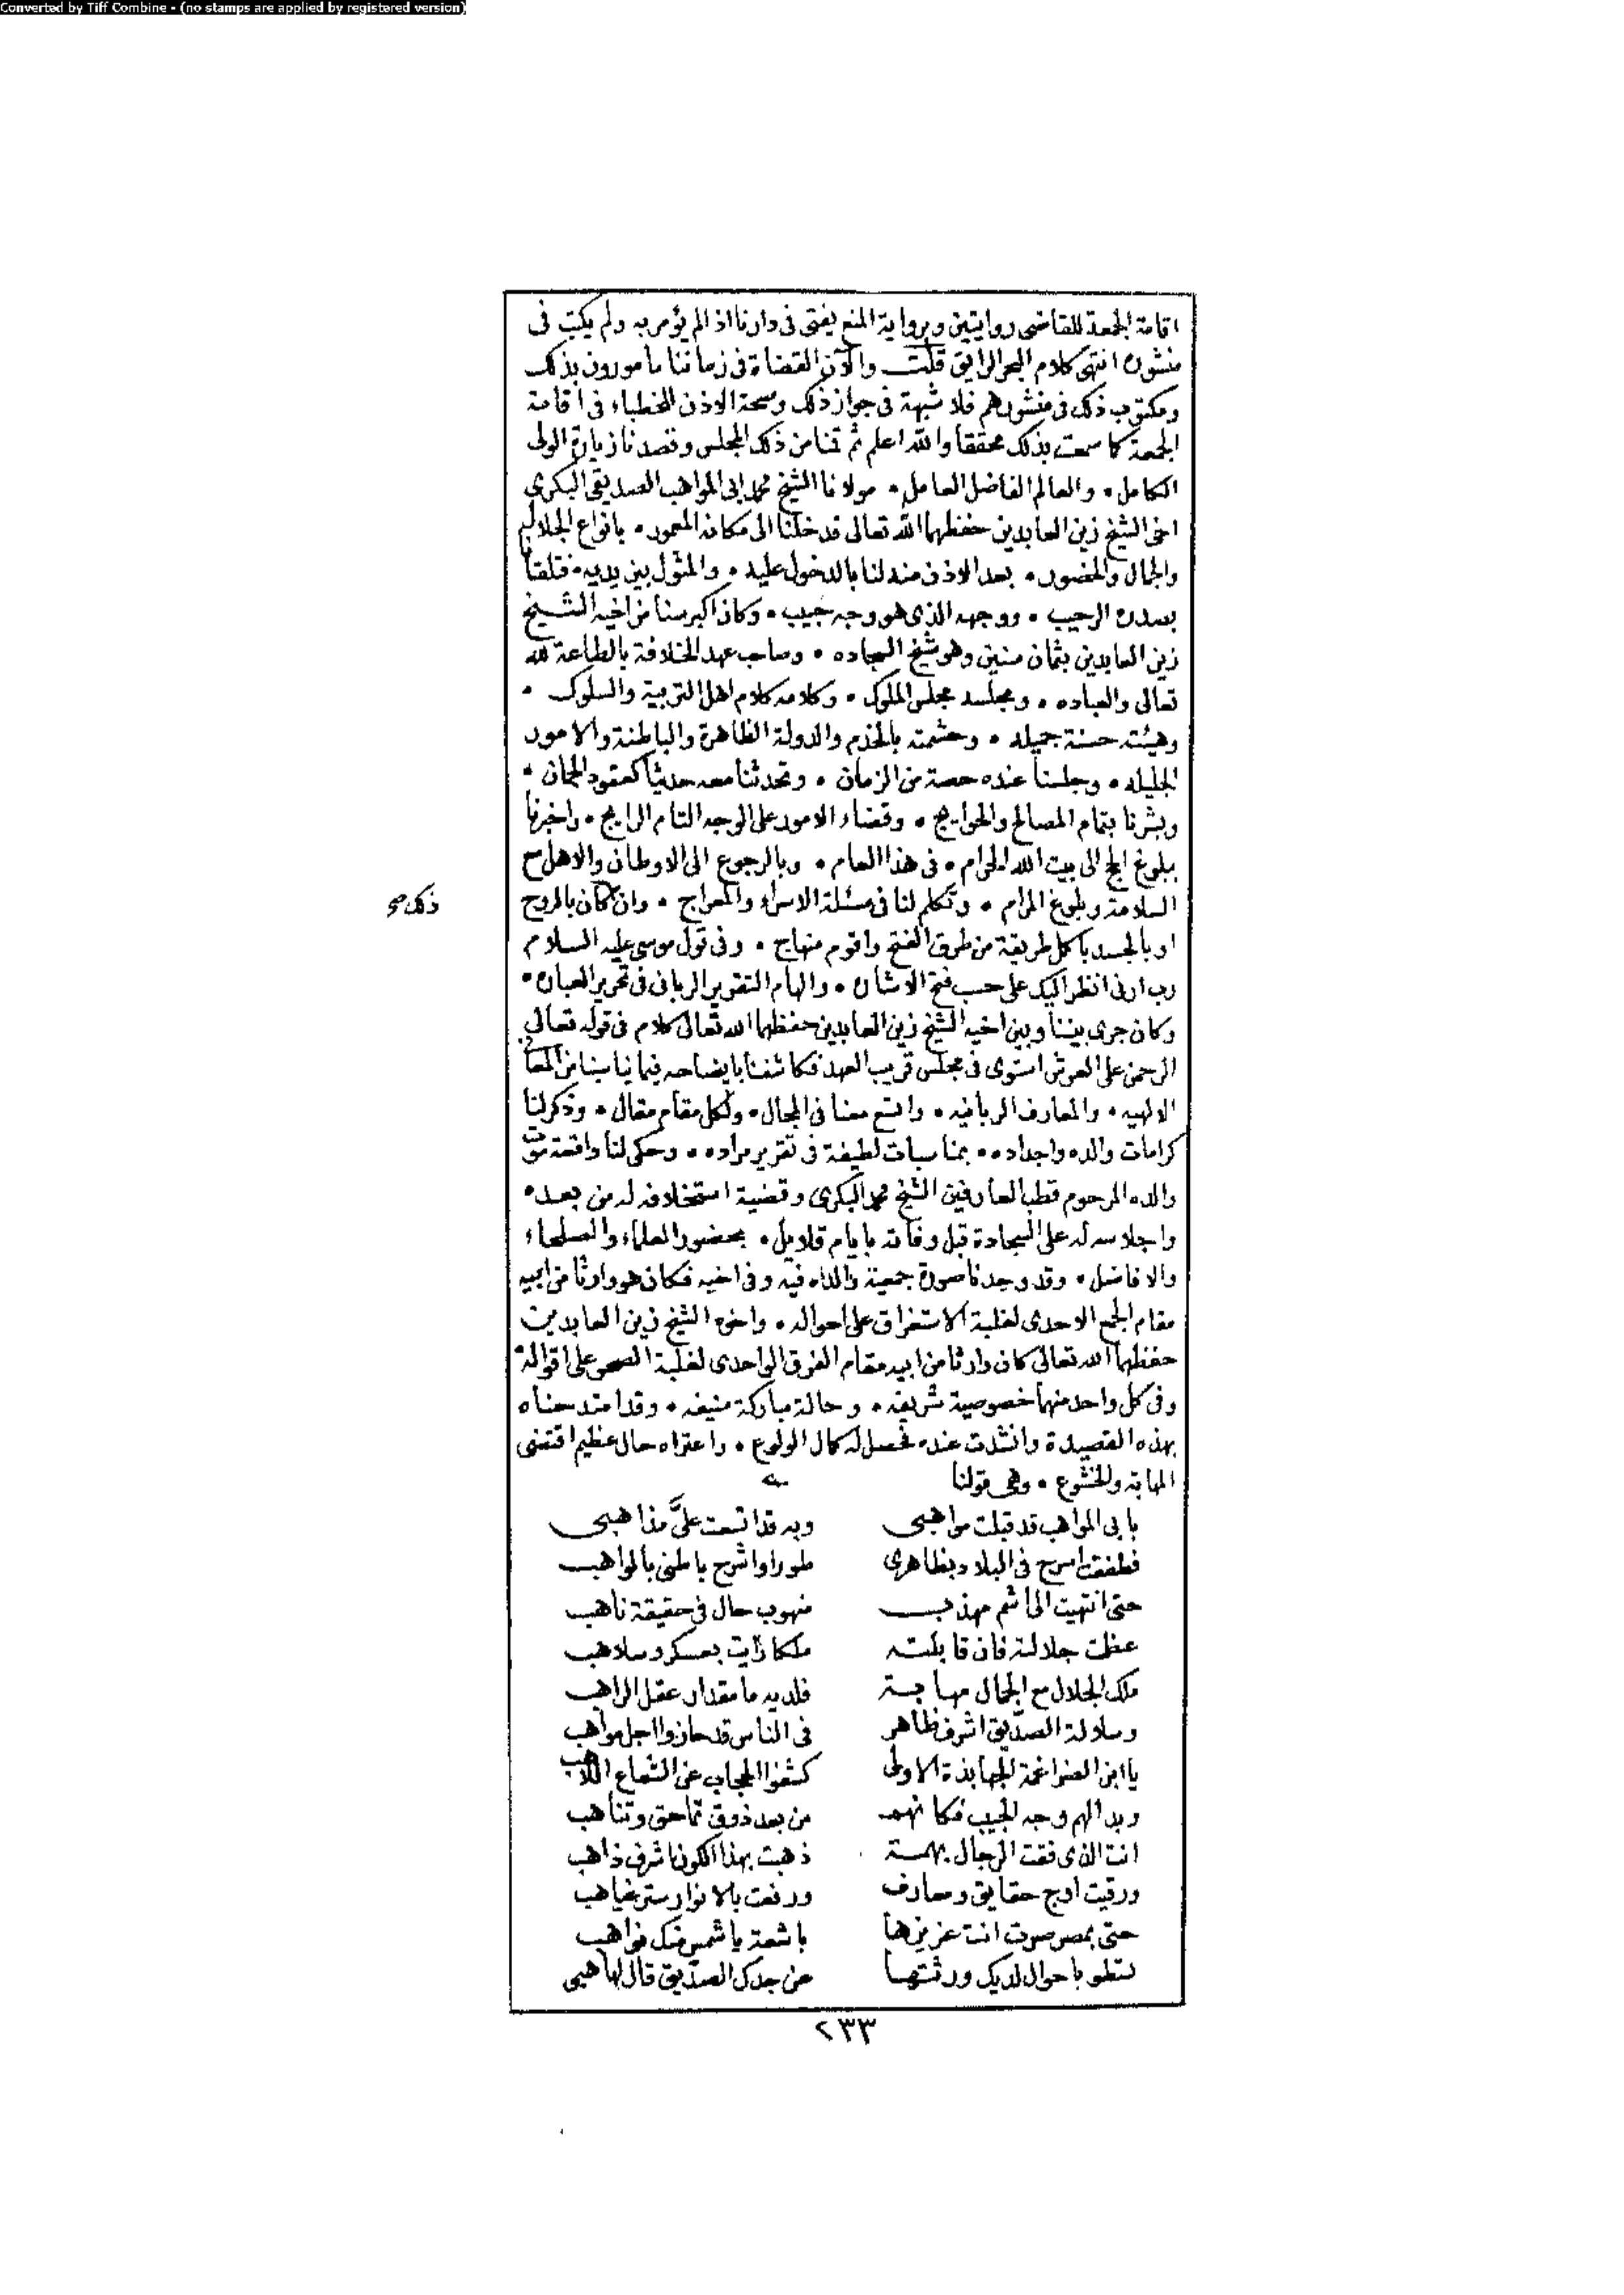 Converted by Tiff Combine - (no stamps are applied by registered version)
اقامة الجمعة للقاضى روايتين وبرواية المنع يفتى فى دارنا اذا لم يؤمر به ولم يكتب فى
منشوره انتهى كلام البحر الرايق قلت والآن القضاة فى زماننا مأمورون بذلك
ومكتوب ذلك فى منشورهم فلا شبهة فى جواز ذلك وصحة الاذن للخطباء فى اقامة
الجمعة كما سمعت بذلك محققا والله اعلم ثم قمنا من ذلك المجلس وقصدنا زيارة الولى
الكامل • والعالم الفاضل العامل • مولانا الشيخ محمد ابى المواهب الصديقى البكرى
اخى الشيخ زين العابدين حفظهما الله تعالى فدخلنا الى مكانه المعمور • بانواع الجلال
والجمال والحضور • بعد الاذن منه لنا بالدخول عليه • والمثول بين يديه • فتلقنا
بصدره الرحيب • ووجهه الذى هو وجه حبيب • وكان اكبر سنا من اخيه الشيخ
زين العابدين بثمان سنين وهو شيخ السجاده • وصاحب عهد الخلافة بالطاعة لله
تعالى والعباده • ومجلسه مجلس الملوك • وكلامه كلام اهل التربية والسلوك •
وهيئته حسنة جميله • وحشمته بالخدم والدولة الظاهرة والباطنة والامور
الجليله • وجلسنا عنده حصة من الزمان • وتحدثنا معه حديثا كعقود الجمان •
وبشرنا بتمام المصالح والحوايج • وقضاء الامور على الوجه التام الرايج • واخبرنا
ببلوغ الحج الى بيت الله الحرام • فى هذا العام • وبالرجوع الى الاوطان والاهل مع
السلامة وبلوغ المرام • وتكلم لنا فى مسئلة الاسراء والمعراج • وان كان بالروح
ذلك صح
او بالجسد باكمل طريقة من طرق الفتح واقوم منهاج • وفى قول موسى عليه السلام
رب ارنى انظر اليك على حسب فتح الاشاره • والهام التقرير الربانى فى تحرير العباره •
وكان جرى بيننا وبين اخيه الشيخ زين العابدين حفظهما الله تعالى كلام فى قوله تعالى
الرحمن على العرش استوى فى مجلس قريب العهد فكاشفنا بايضاحه فيما يناسبنا من المعا
الالهيه • والمعارف الربانيه • واتسع معنا فى المجال • ولكل مقام مقال • وذكر لنا
كرامات والده واجداده • بمناسبات لطيفة فى تقرير مراده • وحكى لنا واقعة موت
والده المرحوم قطب العارفين الشيخ محمد البكرى وقضية استخلافه له من بعده
واجلاسه له على السجادة قبل وفاته بايام قلايل • بحضور العلماء والصلحاء
والافاضل • وقد وجدنا صورة جمعية والده فيه وفى اخيه فكان هو وارثا من ابيه
مقام الجمع الاحدى لغلبة الاستغراق على احواله • واخوه الشيخ زين العابدين
حفظهما الله تعالى كان وارثا من ابيه مقام الفرق الواحدى لغلبة الصحو على اقواله
وفى كل واحد منهما خصوصية شريفه • وحالة مباركة منيفه • وقد امتدحناه
بهذه القصيدة وانشدت عنده فحصل له كمال الولوع • واعتراه حال عظيم اقتضى
المهابة والخشوع • وهى قولنا
بابى المواهب قد قبلت مواهبى وبه قد اتسعت علىَّ مذاهبى
فطفقت اسرح فى البلاد بظاهرى طورا واشرح باطنى بالمواهب
حتى انتهيت الى اشم مهذب منهوب حال فى حقيقة ناهب
عظمت جلالته فان قابلته ملكا رايت بعسكر وسلاهب
ملك الجلال مع الجمال مهابة فلديه ما مقدار عقل الراهب
وسلالة الصدّيق اشرف ظاهر فى الناس قد حازوا اجل مواهب
يا ابن الضراغمة الجهابذة الاولى كشفوا الحجاب عن الشعاع اللاهب
وبدا لهم وجه الحبيب فكانهم من بعد ذوق تماحق وتناهب
انت الذى فقت الرجال بهمة ذهبت بهذا الكون اشرف ذاهب
ورقيت اوج حقايق ومعارف ورفعت بالانوار ستر غياهب
حتى بمصر صرت انت عزيزها باشعة يا شمس منك نواهب
تسطو باحوال لديك ورثتها عن جدك الصدّيق قال لها هبى
٢٣٣